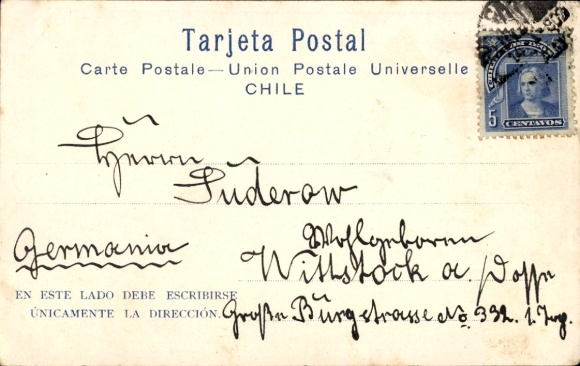 Tarjeta Postal
Carte Postale—Union Postale Universelle
CHILE
5
CENTAVOS
Herrn
Süderow
Wohlgeboren
Germania
Wittstock a./Dosse
EN ESTE LADO DEBE ESCRIBIRSE
ÚNICAMENTE LA DIRECCIÓN.
Große Burgstrasse No. 332. 1.